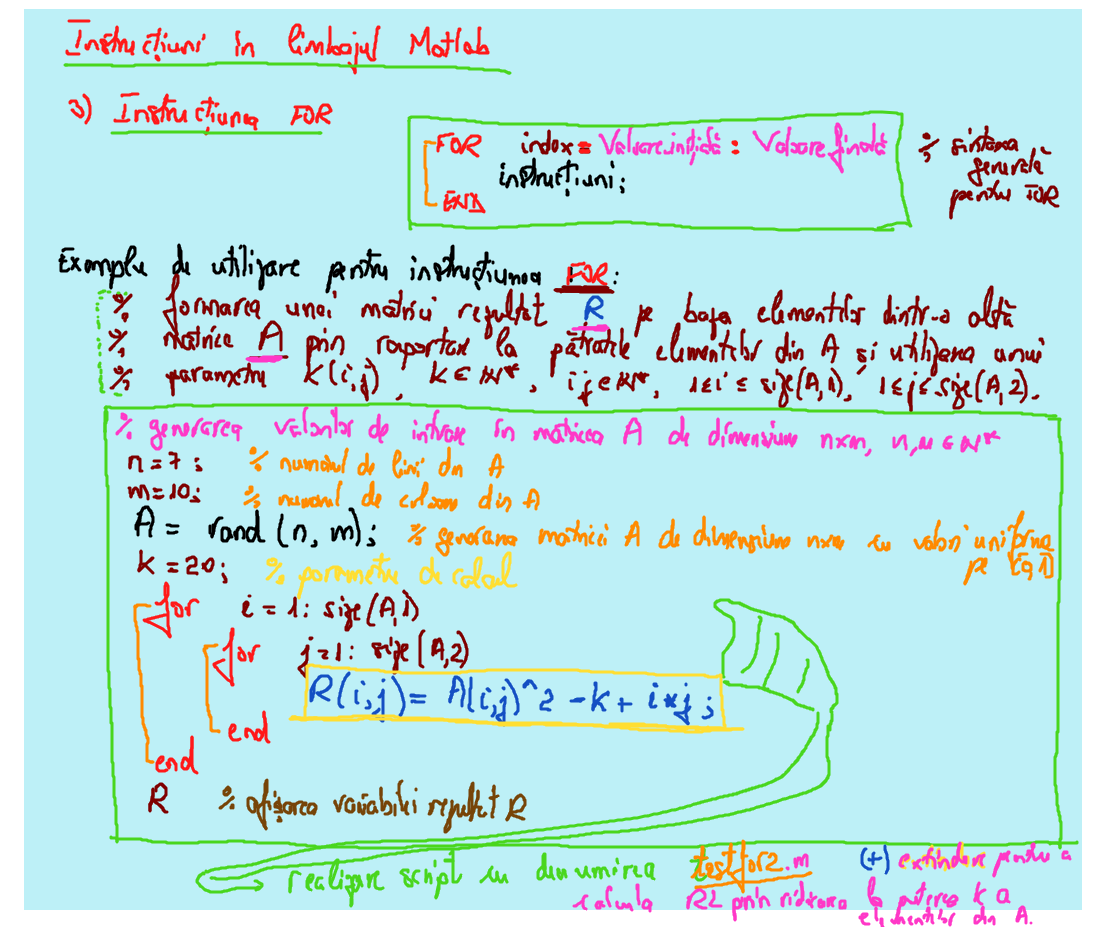 Instrucțiuni în limbajul Matlab
3) Instrucțiunea FOR
FOR index = Valoare_inițială : Valoare_finală % sintaxa
instrucțiuni; generală
END pentru FOR
Exemplu de utilizare pentru instrucțiunea FOR:
% formarea unei matrici rezultat R pe baza elementelor dintr-o altă
% matrice A prin raportare la pătratele elementelor din A și utilizarea unui
% parametru k(i,j), k ∈ N*, i,j ∈ N*, 1≤i ≤ size(A,1), 1≤j≤size(A,2).
% generarea valorilor de intrare în matricea A de dimensiune nxm, n,m ∈ N*
n=7; % numărul de linii din A
m=10; % numărul de coloane din A
A = rand(n, m); % generarea matricei A de dimensiune nxm cu valori uniforme
pe [0,1]
k=20; % parametru de calcul
for i = 1: size(A,1)
for j=1: size(A,2)
R(i,j)= A(i,j)^2 -k + i*j;
end
end
R % afișarea variabilei rezultat R
realizare script cu denumirea testfor2.m (+) extindere pentru a
calcula R2 prin ridicarea la puterea k a
elementelor din A.